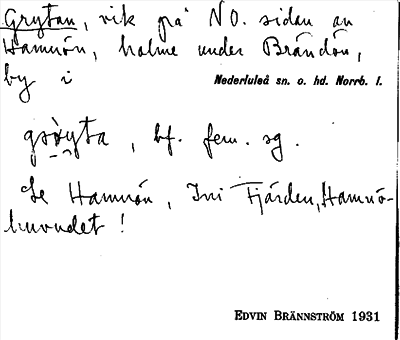 Grytan, vik på NO. sidan av
Hamnön, holme under Brändön,
by i Nederluleå sn. o. hd. Norrb. l.
, bf. fem. sg.
Se Hamnön, Ini Fjärden, Hamnö-
huvudet!
EDVIN BRÄNNSTRÖM 1931